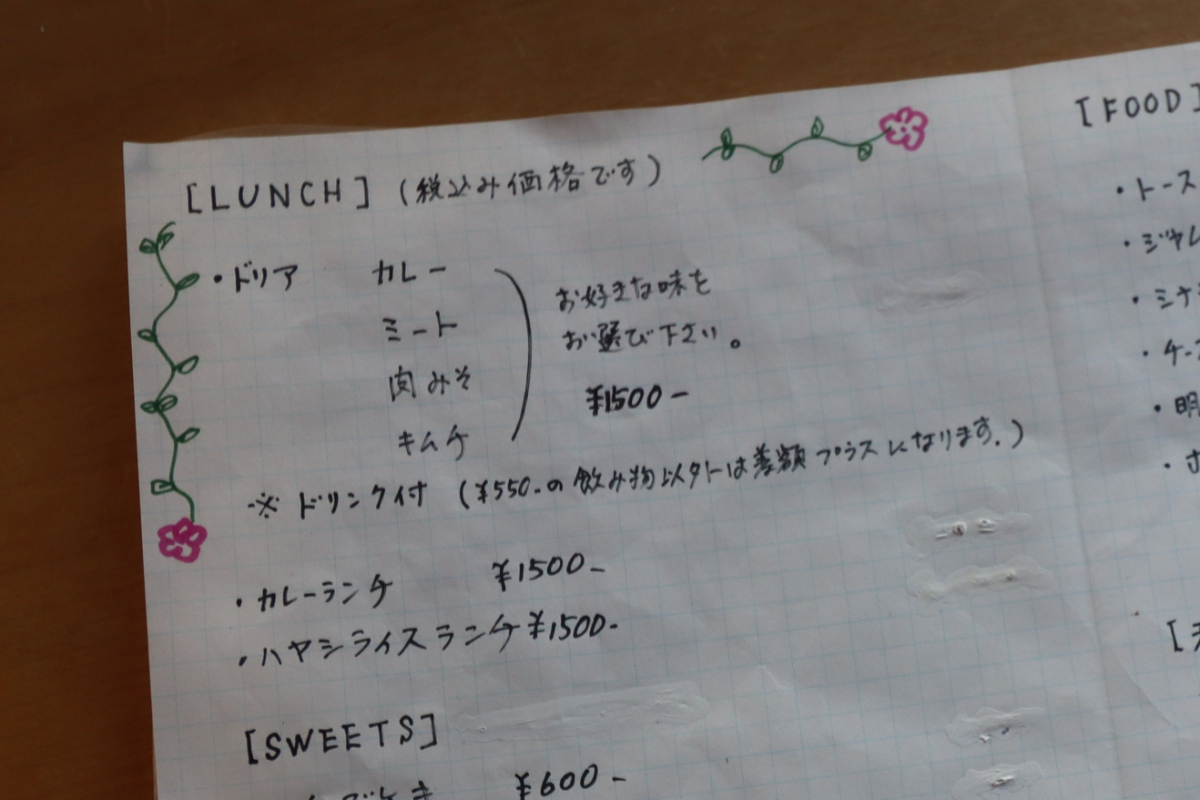 [LUNCH] (税込み価格です)
・ドリア カレー
ミート
肉みそ
キムチ
お好きな味を
お選び下さい。
¥1500-
※ ドリンク付 (¥550-の飲み物以外は差額プラスになります.)
・カレーランチ ¥1500-
・ハヤシライスランチ ¥1500-
[SWEETS]
¥600-
[FOOD]
・トース
・ジャム
・ミナ
・チーズ
・明